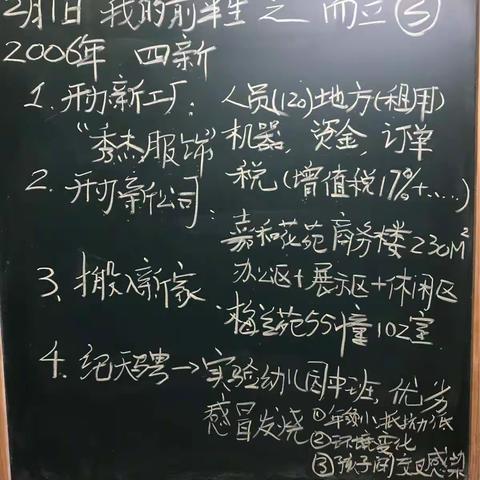 2月1日 我的前半生之而立③
2006年 四新
1. 开办新工厂: 人员(120)地方(租用)
"秀杰服饰" 机器, 资金, 订单
税(增值税17%+......)
2. 开办新公司:
嘉和花苑商务楼230M²
办公区+展示区+休闲区
3、搬入新家
梅兰苑55幢102室
4. 纪天骋→实验幼儿园中班 优劣
感冒发烧 ①年龄小抵抗力低
②环境变化
③孩子间交叉感染